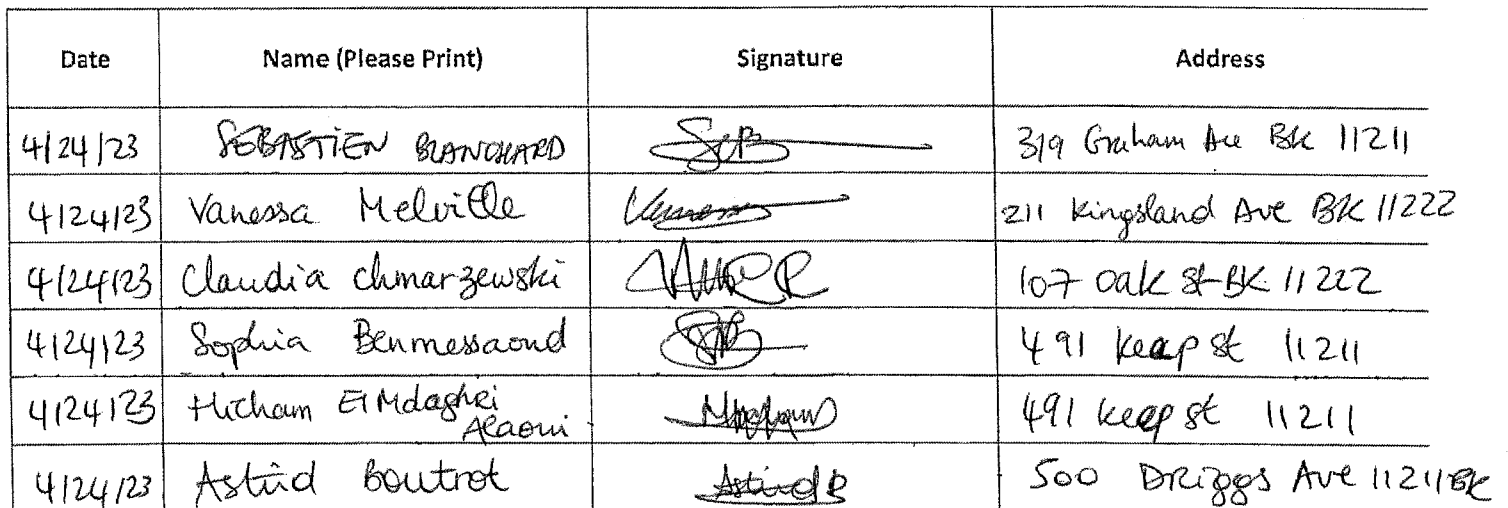 Date Name (Please Print) Signature Address
4/24/23 SEBASTIEN BLANCHARD SeB 319 Graham Ave BK 11211
4/24/23 Vanessa Melville 211 Kingsland Ave BK 11222
4/24/23 Claudia Chmarzewski 107 Oak St BK 11222
4/24/23 Sophia Benmessaoud SB 491 Keap St 11211
4/24/23 Hicham El Mdaghri
Alaoui 491 Keap St 11211
4/24/23 Astrid Boutrot Astrid B 500 DRiggs Ave 11211 BK